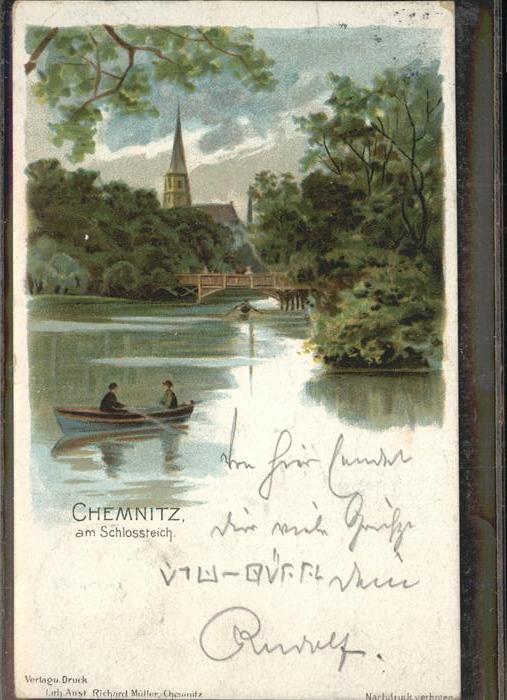 CHEMNITZ,
am Schlossteich.
Von hier sendet
Dir viele Grüße
Dein
Rudolf.
Verlag u. Druck
Lith. Anst. Richard Müller, Chemnitz
Nachdruck verboten